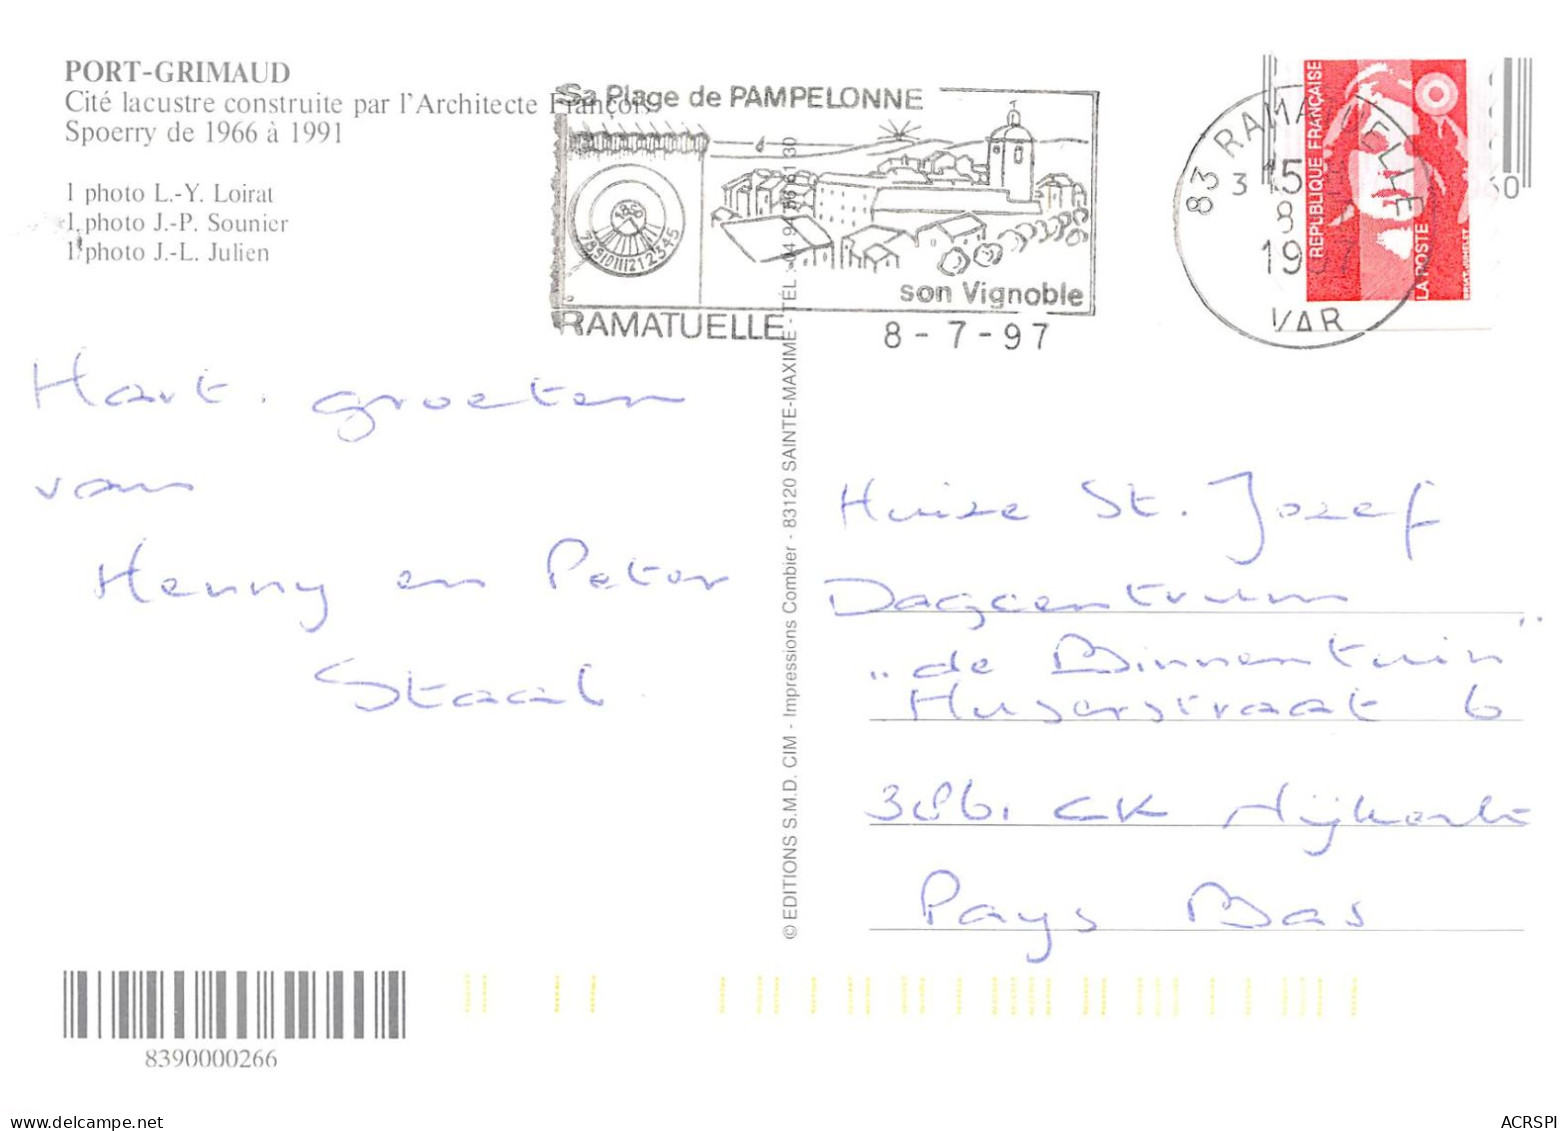 PORT-GRIMAUD
Cité lacustre construite par l'Architecte François
Spoerry de 1966 à 1991
1 photo L.-Y. Loirat
1 photo J.-P. Sounier
1 photo J.-L. Julien
Sa Plage de PAMPELONNE
son Vignoble
RAMATUELLE
8 - 7 - 97
83 RAMATUELLE
15
8
VAR
REPUBLIQUE FRANÇAISE
LA POSTE
Hart. groeten
van
Henny en Peter
Staal
Huize St. Jozef
Dagcentrum
„de Binnentuin"
Huserstraat 6
3861 CK Nijkerk
Pays Bas
© EDITIONS S.M.D. CIM - Impressions Combier - 83120 SAINTE-MAXIME - TÉL.
8390000266
www.delcampe.net
ACRSPI